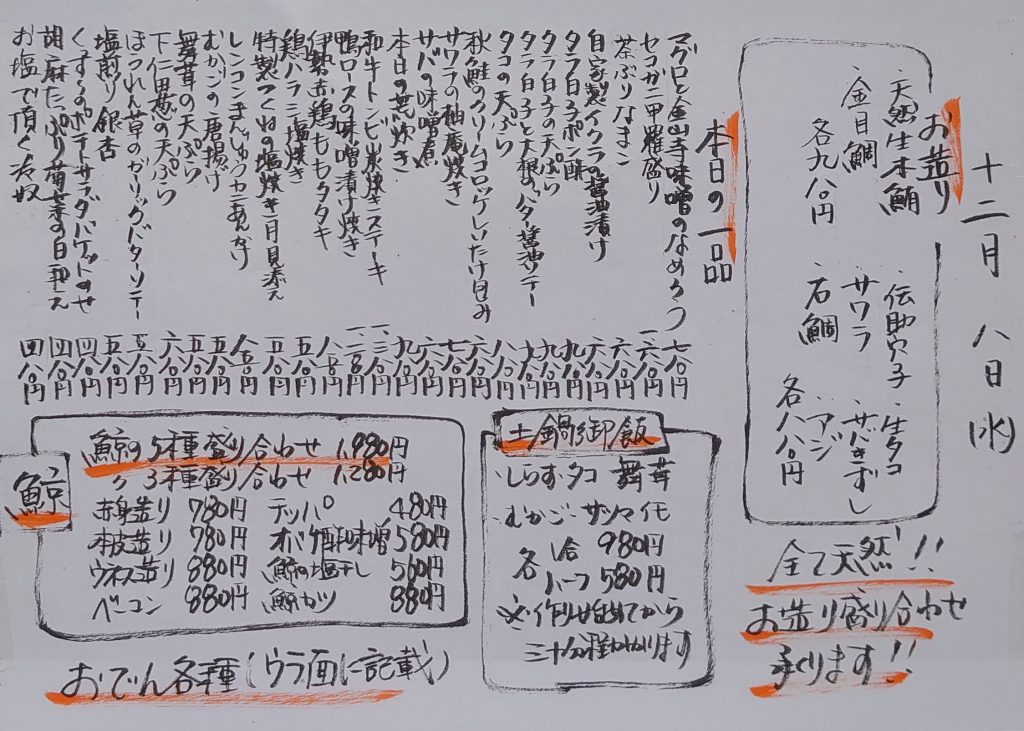 十二月 八日(水)
お造り
・天然生本鮪 ・伝助穴子 ・生タコ
・金目鯛 ・サワラ ・サバきずし
・石鯛 ・アジ
各九八〇円 各八八〇円
全て天然!!
お造り盛り合わせ
承ります!!
本日の一品
マグロと金山寺味噌のなめろう 七八〇円
セコガニ甲羅盛り 一、六八〇円
茶ぶりなまこ 六八〇円
自家製イクラの醤油漬け 六八〇円
タラ白子ポン酢 九八〇円
タラ白子の天ぷら 九八〇円
タラ白子と大根のバター醤油ソテー 九八〇円
タコの天ぷら 八八〇円
秋鮭のクリームコロッケしいたけ包み 八八〇円
サワラの柚庵焼き 七八〇円
サバの味噌煮 六八〇円
本日の荒炊き 九八〇円
和牛トンビ炭焼きステーキ
鴨ロースの味噌漬け焼き
伊勢赤鶏ももタタキ
鶏バラミ塩焼き 五八〇円
特製つくねの塩焼き 月見添え 六八〇円
レンコンまんじゅうカニあんかけ
むかごの唐揚げ 五八〇円
舞茸の天ぷら 五八〇円
下仁田葱の天ぷら 六八〇円
ほうれん草のガーリックバターソテー 五八〇円
塩煎り銀杏 五八〇円
くずしのポテトサラダバケットのせ 四八〇円
胡麻たっぷり菊菜の白和え 四八〇円
お塩で頂く冷奴 四八〇円
土鍋御飯
・しらす・タコ 舞茸
・むかご・サツマイモ
各 一合 980円
ハーフ 580円
※作り始めてから
三十分程かかります
鯨
鯨の5種盛り合わせ 1,980円
〃 3種盛り合わせ 1,280円
赤身造り 780円 テッパ 480円
本皮造り 780円 オバケ酢味噌 580円
ウネス造り 880円 鯨の塩干し 580円
ベーコン 880円 鯨カツ 880円
おでん各種(ウラ面に記載)